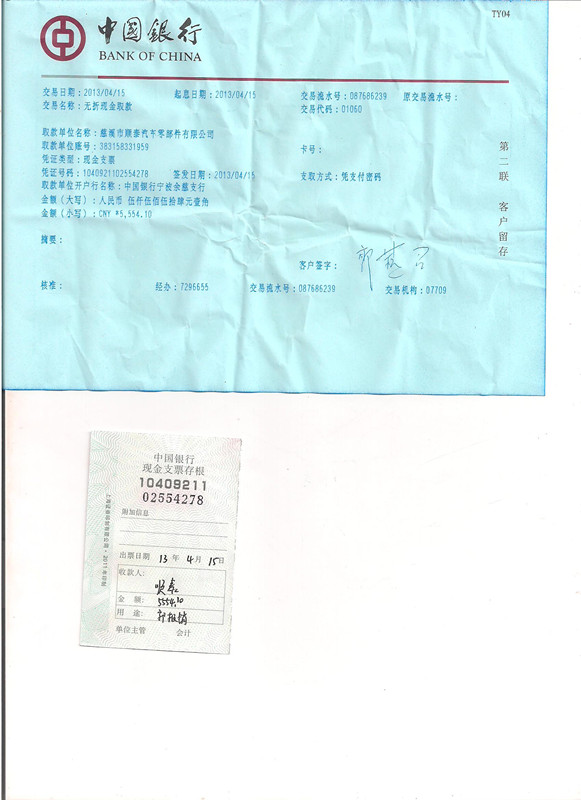 TY04
中国銀行
BANK OF CHINA
交易日期：2013/04/15 起息日期：2013/04/15 交易流水号：087686239 原交易流水号：
交易名称：无折现金取款 交易代码：01060
取款单位名称：慈溪市顺泰汽车零部件有限公司
取款单位账号：383158331959 卡号：
凭证类型：现金支票
凭证号码：1040921102554278 签发日期：2013/04/15 支取方式：凭支付密码
取款单位开户行名称：中国银行宁波余慈支行
金额（大写）：人民币 伍仟伍佰伍拾肆元壹角
金额（小写）：CNY #5,554.10
摘要：
客户签字：
核准： 经办：7296655 交易流水号：087686239 交易机构：07709
第二联 客户留存
中国银行
现金支票存根
10409211
02554278
附加信息
出票日期 13 年 4 月 15 日
收款人：
顺泰
金 额： 5554.10
用 途：
单位主管 会计